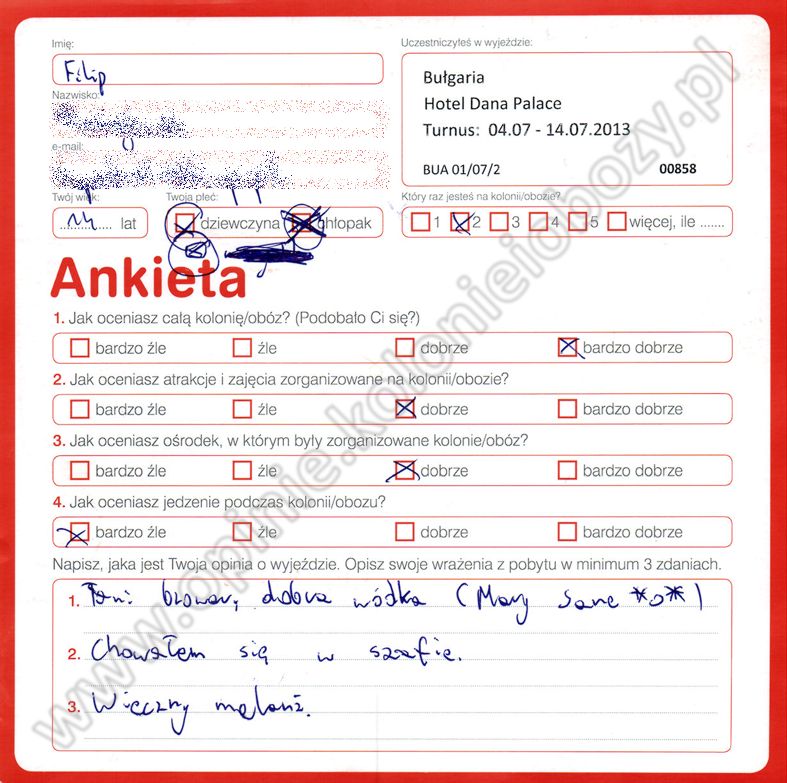 Imię:
Filip
Nazwisko:
e-mail:
Twój wiek:
14 lat
Twoja płeć:
dziewczyna chłopak
Uczestniczyłeś w wyjeździe:
Bułgaria
Hotel Dana Palace
Turnus: 04.07 - 14.07.2013
BUA 01/07/2 00858
Który raz jesteś na kolonii/obozie?
1 2 3 4 5 więcej, ile .......
Ankieta
1. Jak oceniasz całą kolonię/obóz? (Podobało Ci się?)
bardzo źle źle dobrze bardzo dobrze
2. Jak oceniasz atrakcje i zajęcia zorganizowane na kolonii/obozie?
bardzo źle źle dobrze bardzo dobrze
3. Jak oceniasz ośrodek, w którym były zorganizowane kolonie/obóz?
bardzo źle źle dobrze bardzo dobrze
4. Jak oceniasz jedzenie podczas kolonii/obozu?
bardzo źle źle dobrze bardzo dobrze
Napisz, jaka jest Twoja opinia o wyjeździe. Opisz swoje wrażenia z pobytu w minimum 3 zdaniach.
1. browar, dobra wódka (Mary Jane *o*)
2. Chowałem się w szafie.
3. Wieczny melanż.
www.opinie.kolonieiobozy.pl